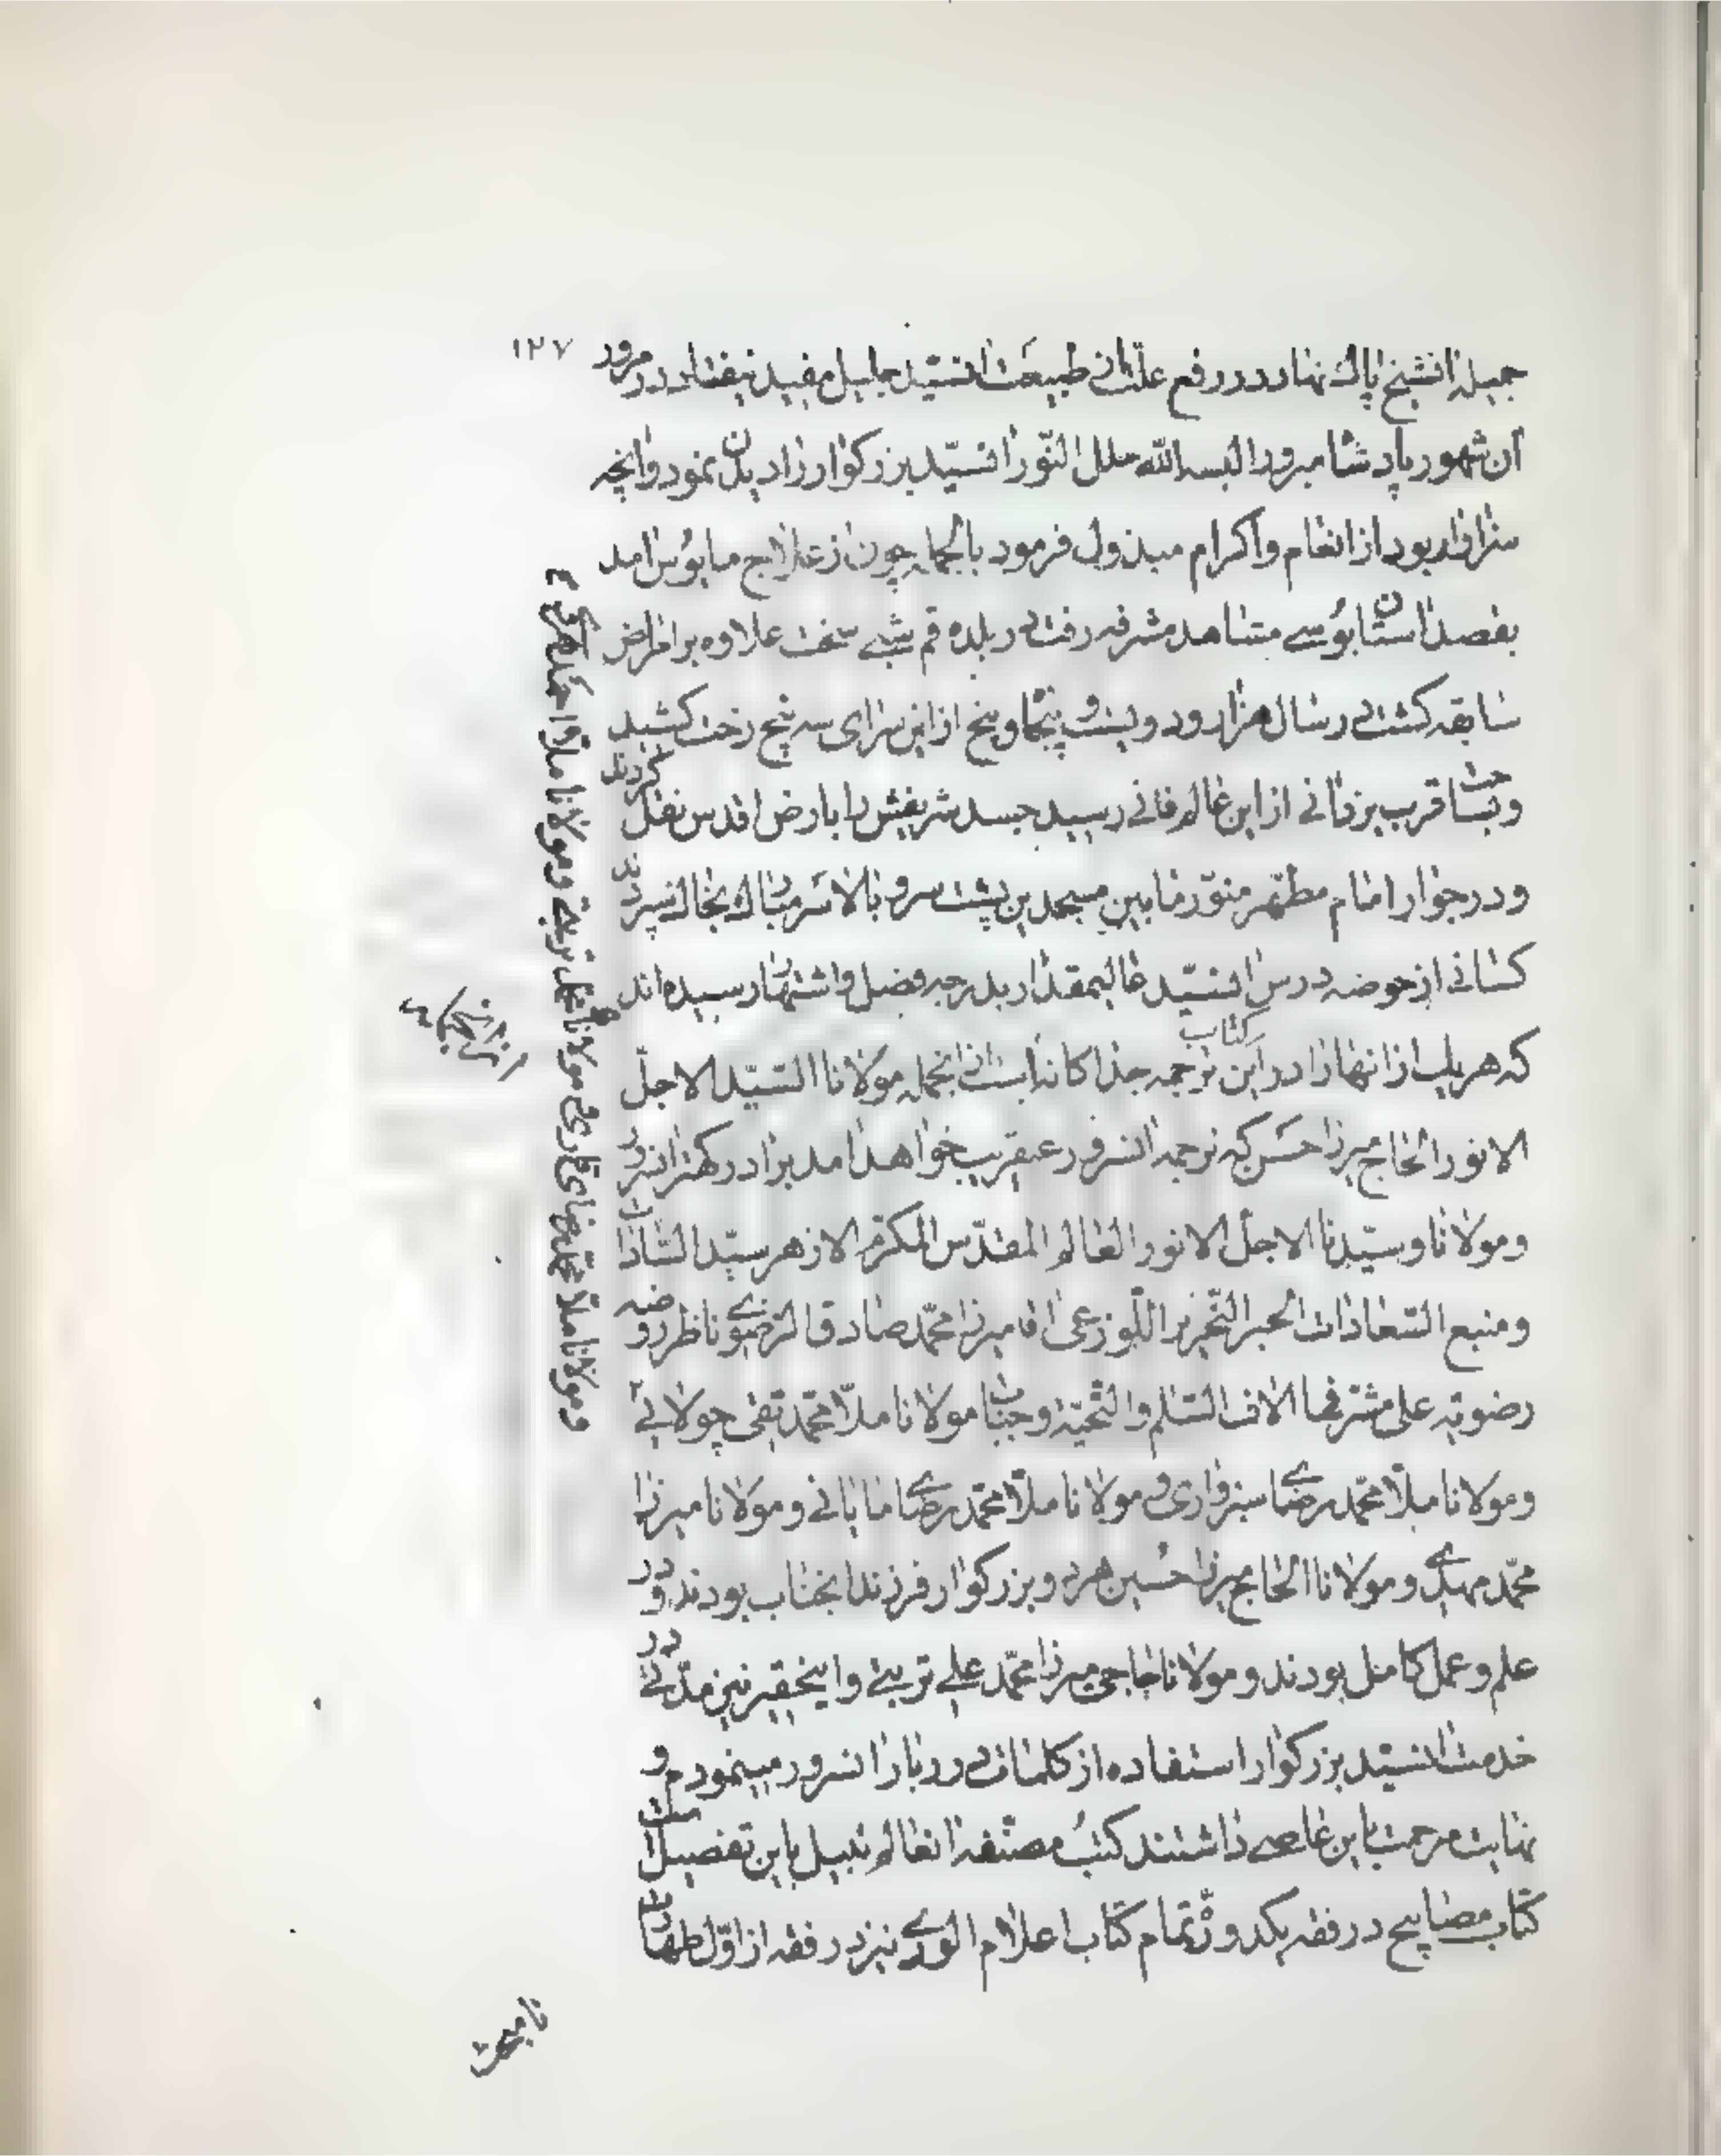 ۱۲۷
جمیله انشیخ پاك نهاد در رفع علت از طبیعت انسید جلیل مفید نیفتاد در مرور
آن شهور پادشاه مبرور البسه الله حلل النور انسید بزرکوار را دیدن نمود وانچه
سزاوار بود از انعام واکرام مبذول فرمود بالجمله چون از علاج مایوس امد
بقصد استان بوسی مشاهد مشرفه رفت در بلده قم تبی سخت علاوه بر امراض
سابقه کشت در سال هزار و دویست و پنجاه و پنج از این سرای سه پنج رخت کشید
و بساحت قرب یزدانی از این عالم فانی رسید جسد شریفش را بارض اقدس نقل کردند
و در جوار امام مطهر منور مابین مسجد پشت سر و بالا سر مبارك بخاك سپردند
کسانی از حوضه درس انسید عالیمقدار بدرجه فضل واشتهار رسیده اند
که هر یك از انها را در این کتاب ترجمه جداکانه است از انجمله مولانا السید الاجل
الانور الحاج میرزا حسن که ترجمه انسرور عنقریب خواهد امد برادر کهتر انسرور
ومولانا وسیدنا الاجل الانور العالم المقدس المکرم الازهر سید السادات
ومنبع السعادات الحبر النحریر اللوزعی اقا میرزا محمد صادق الرضوی ناظر روضه
رضویه علی مشرفها الاف السلم والتحیة وجناب مولانا ملا محمد تقی جولائی
ومولانا ملا محمد رضای سبزواری و مولانا ملا محمد رضای امابانی ومولانا میرزا
محمد مهدی ومولانا الحاج میرزا حسین هر دو بزرکوار فرزند انجناب بودند و در
علم وعمل کامل بودند ومولانا حاجی میرزا محمد علی تربتی واینحقیر نیز مدتی در
خدمت انسید بزرکوار استفاده از کلمات درربار انسرور مینمودم و
نهایت مرحمت باین عاصی داشتند کتب مصنفه انعالم نبیل باین تفصیل است
کتاب مصابیح در فقه یکدوره تمام کتاب اعلام الوری نیز در فقه از اول طهارت
ومولانا ملا محمد رضای قاری و مولانا محمد تربتی ومولانا ملا احمد
تا مبحث